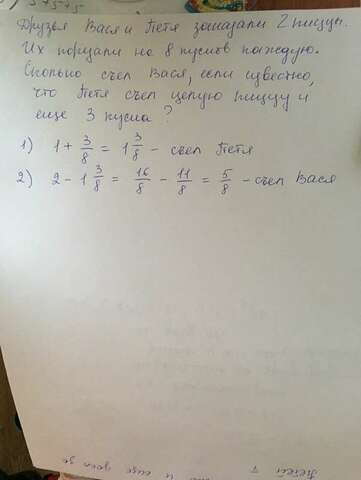 Друзья Вася и Петя заказали 2 пиццы.
Их порезали на 8 кусков каждую.
Сколько съел Вася, если известно,
что Петя съел целую пиццу и
еще 3 куска?
1) 1 + 3/8 = 1 3/8 - съел Петя
2) 2 - 1 3/8 = 16/8 - 11/8 = 5/8 - съел Вася